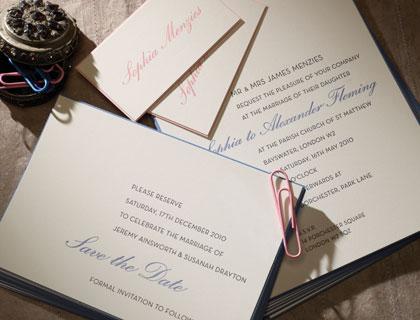 Sophia Menzies
Sophia
MR & MRS JAMES MENZIES
REQUEST THE PLEASURE OF YOUR COMPANY
AT THE MARRIAGE OF THEIR DAUGHTER
Sophia to Alexander Fleming
AT THE PARISH CHURCH OF ST MATTHEW
BAYSWATER, LONDON W2
SATURDAY, 16TH MAY 2010
O'CLOCK
AFTERWARDS AT
DORCHESTER, PARK LANE.
R.S.V.P.
PORCHESTER SQUARE
LONDON
PLEASE RESERVE
SATURDAY, 17TH DECEMBER 2010
TO CELEBRATE THE MARRIAGE OF
JEREMY AINSWORTH & SUSANAH DRAYTON
Save the Date
FORMAL INVITATION TO FOLLOW